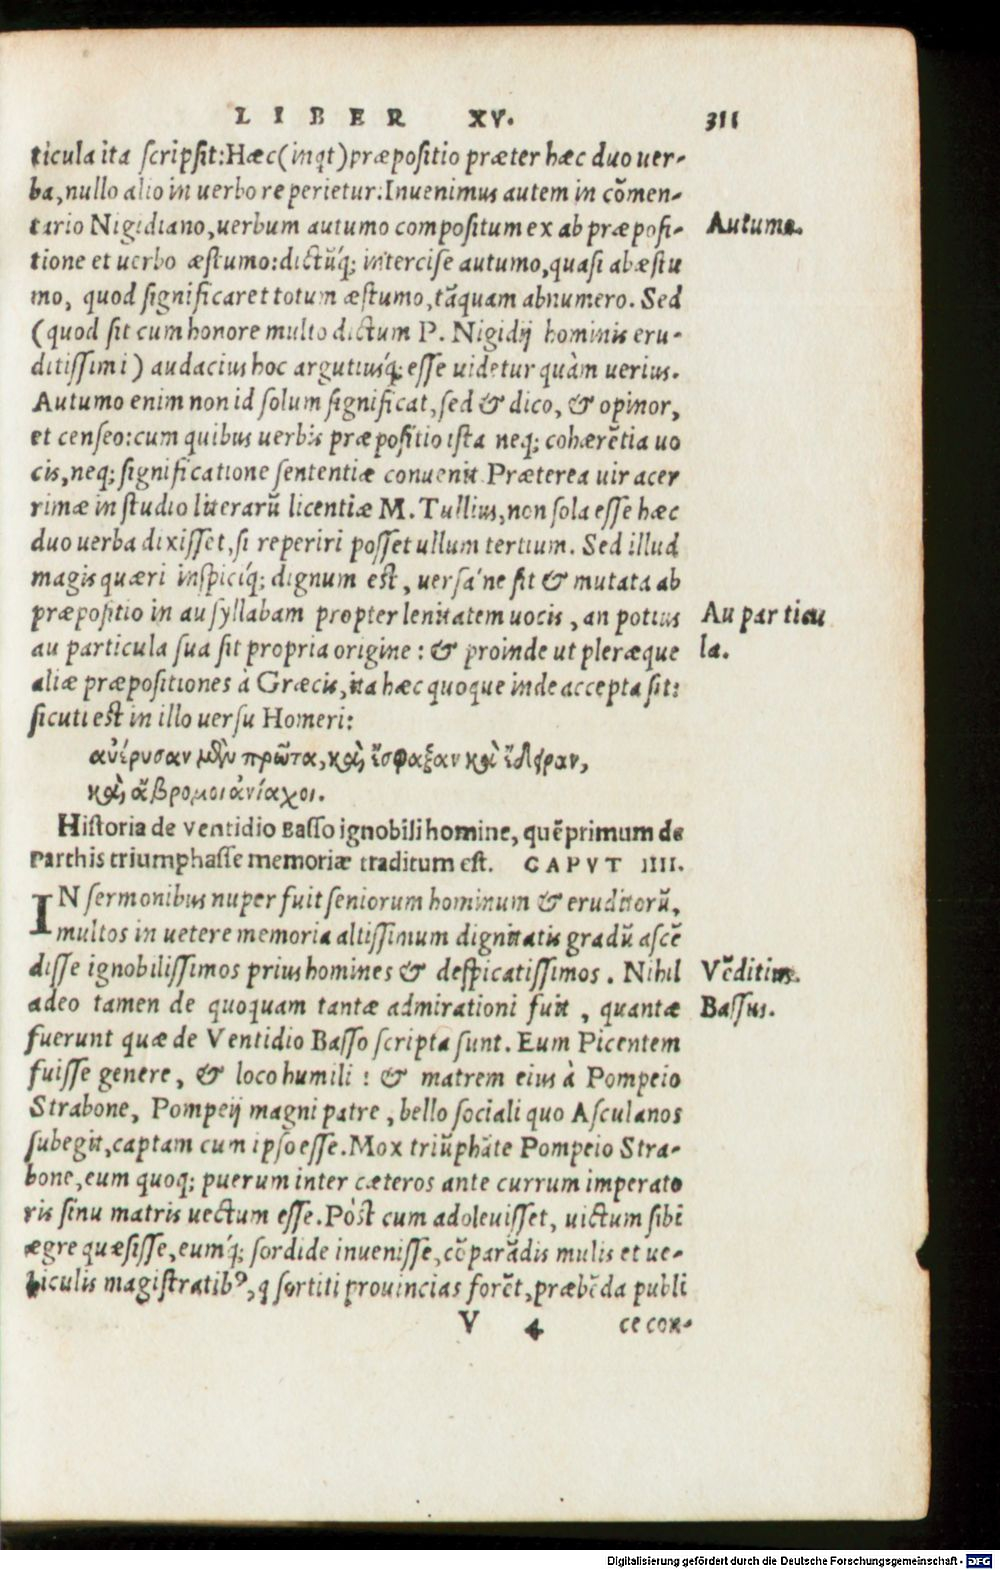 LIBER XV. 311
ticula ita scripsit: Hæc (inqt) præpositio præter hæc duo uer-
ba, nullo alio in uerbo reperietur: Inuenimus autem in cõmen-
tario Nigidiano, uerbum autumo compositum ex ab præposi- Autumo.
tione et uerbo æstumo: dictũq́; intercise autumo, quasi abæstu
mo, quod significaret totum æstumo, tãquam abnumero. Sed
(quod sit cum honore multo dictum P. Nigidij hominis eru-
ditissimi) audacius hoc argutiusq́; esse uidetur quàm uerius.
Autumo enim non id solum significat, sed & dico, & opinor,
et censeo: cum quibus uerbis præpositio ista neq; cohærẽtia uo
cis, neq; significatione sententiæ conuenit. Præterea uir acer
rimæ in studio literarũ licentiæ M. Tullius, non sola esse hæc
duo uerba dixisset, si reperiri posset ullum tertium. Sed illud
magis quæri inspiciq́; dignum est, uersá ne sit & mutata ab
præpositio in au syllabam propter lenitatem uocis, an potius Au particu
au particula sua sit propria origine: & proinde ut pleræque la.
aliæ præpositiones à Græcis, ita hæc quoque inde accepta sit:
sicuti est in illo uersu Homeri:
αὐέρυσαν μὲν πρῶτα, καὶ ἔσφαξαν καὶ ἔδειραν,
καὶ, ἄβρομοι ἀνίαχοι.
Historia de Ventidio Basso ignobili homine, quẽ primum de
Parthis triumphasse memoriæ traditum est. CAPVT IIII.
IN sermonibus nuper fuit seniorum hominum & eruditorũ,
multos in uetere memoria altissimum dignitatis gradũ ascẽ
disse ignobilissimos prius homines & despicatissimos. Nihil Vẽditius
adeo tamen de quoquam tantæ admirationi fuit, quantæ Bassus.
fuerunt quæ de Ventidio Basso scripta sunt. Eum Picentem
fuisse genere, & loco humili: & matrem eius à Pompeio
Strabone, Pompeij magni patre, bello sociali quo Asculanos
subegit, captam cum ipso esse. Mox triũphãte Pompeio Stra-
bone, eum quoq; puerum inter cæteros ante currum imperato
ris sinu matris uectum esse. Pòst cum adoleuisset, uictum sibi
ægre quæsisse, eumq́; sordide inuenisse, cõparãdis mulis et ue-
hiculis magistratibꝰ, q sortiti prouincias forẽt, præbẽda publi
V 4 ce con-
Digitalisierung gefördert durch die Deutsche Forschungsgemeinschaft - DFG